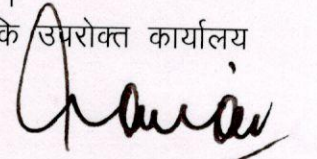 कि उपरोक्त कार्यालय